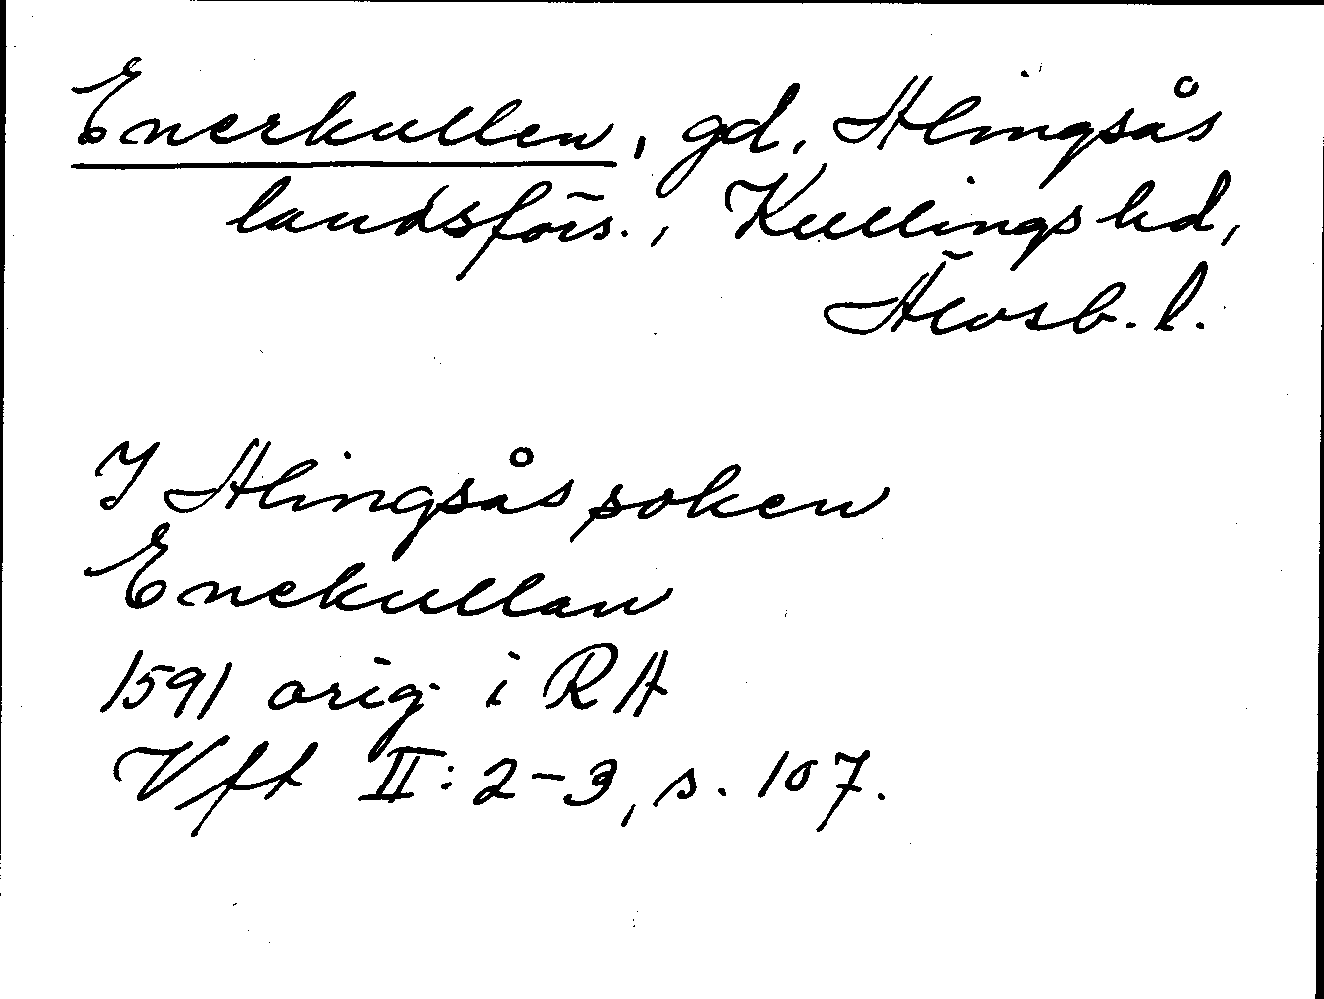 Enerkullen, gd, Alingsås
landsförs., Kullings hd,
Älvsb. l.
I Alingsås soken
Enekullan
1591 orig. i RA
Vft II: 2-3, s. 107.